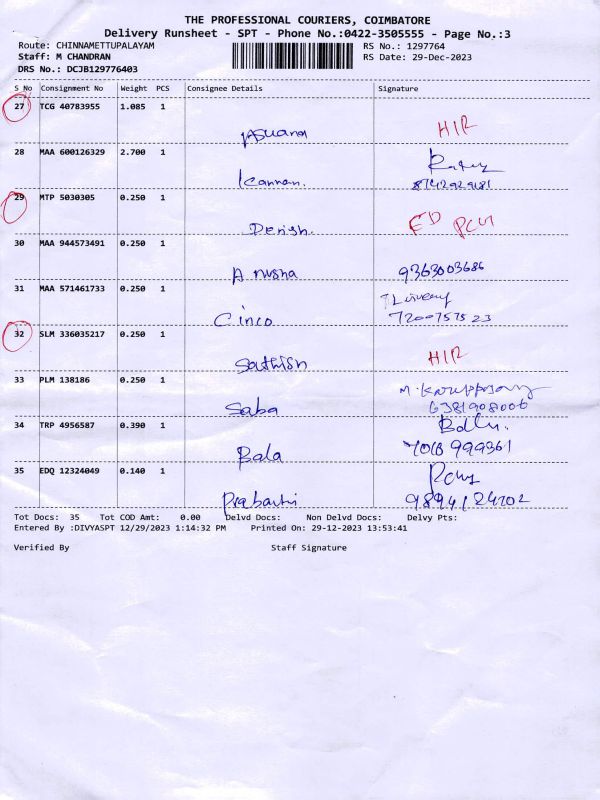 THE PROFESSIONAL COURIERS, COIMBATORE
Delivery Runsheet - SPT - Phone No.:0422-3505555 - Page No.:3
Route: CHINNAMETTUPALAYAM RS No.: 1297764
Staff: M CHANDRAN RS Date: 29-Dec-2023
DRS No.: DCJB129776403
S No Consignment No Weight PCS Consignee Details Signature
27 TCG 40783955 1.085 1
HIR
28 MAA 600126329 2.700 1
Kannan. 8742929181
29 MTP 5030305 0.250 1
ED
Derish.
30 MAA 944573491 0.250 1
Anusha 9363003686
31 MAA 571461733 0.250 1
Cinco 7200757523
32 SLM 336035217 0.250 1
Sathish HIR
33 PLM 138186 0.250 1
M. Karuppasamy
Saba 6381908006
34 TRP 4956587 0.390 1
Bala 7018999361
35 EDQ 12324049 0.140 1
Prabanthi 9894124702
Tot Docs: 35 Tot COD Amt: 0.00 Delvd Docs: Non Delvd Docs: Delvy Pts:
Entered By :DIVYASPT 12/29/2023 1:14:32 PM Printed On: 29-12-2023 13:53:41
Verified By Staff Signature